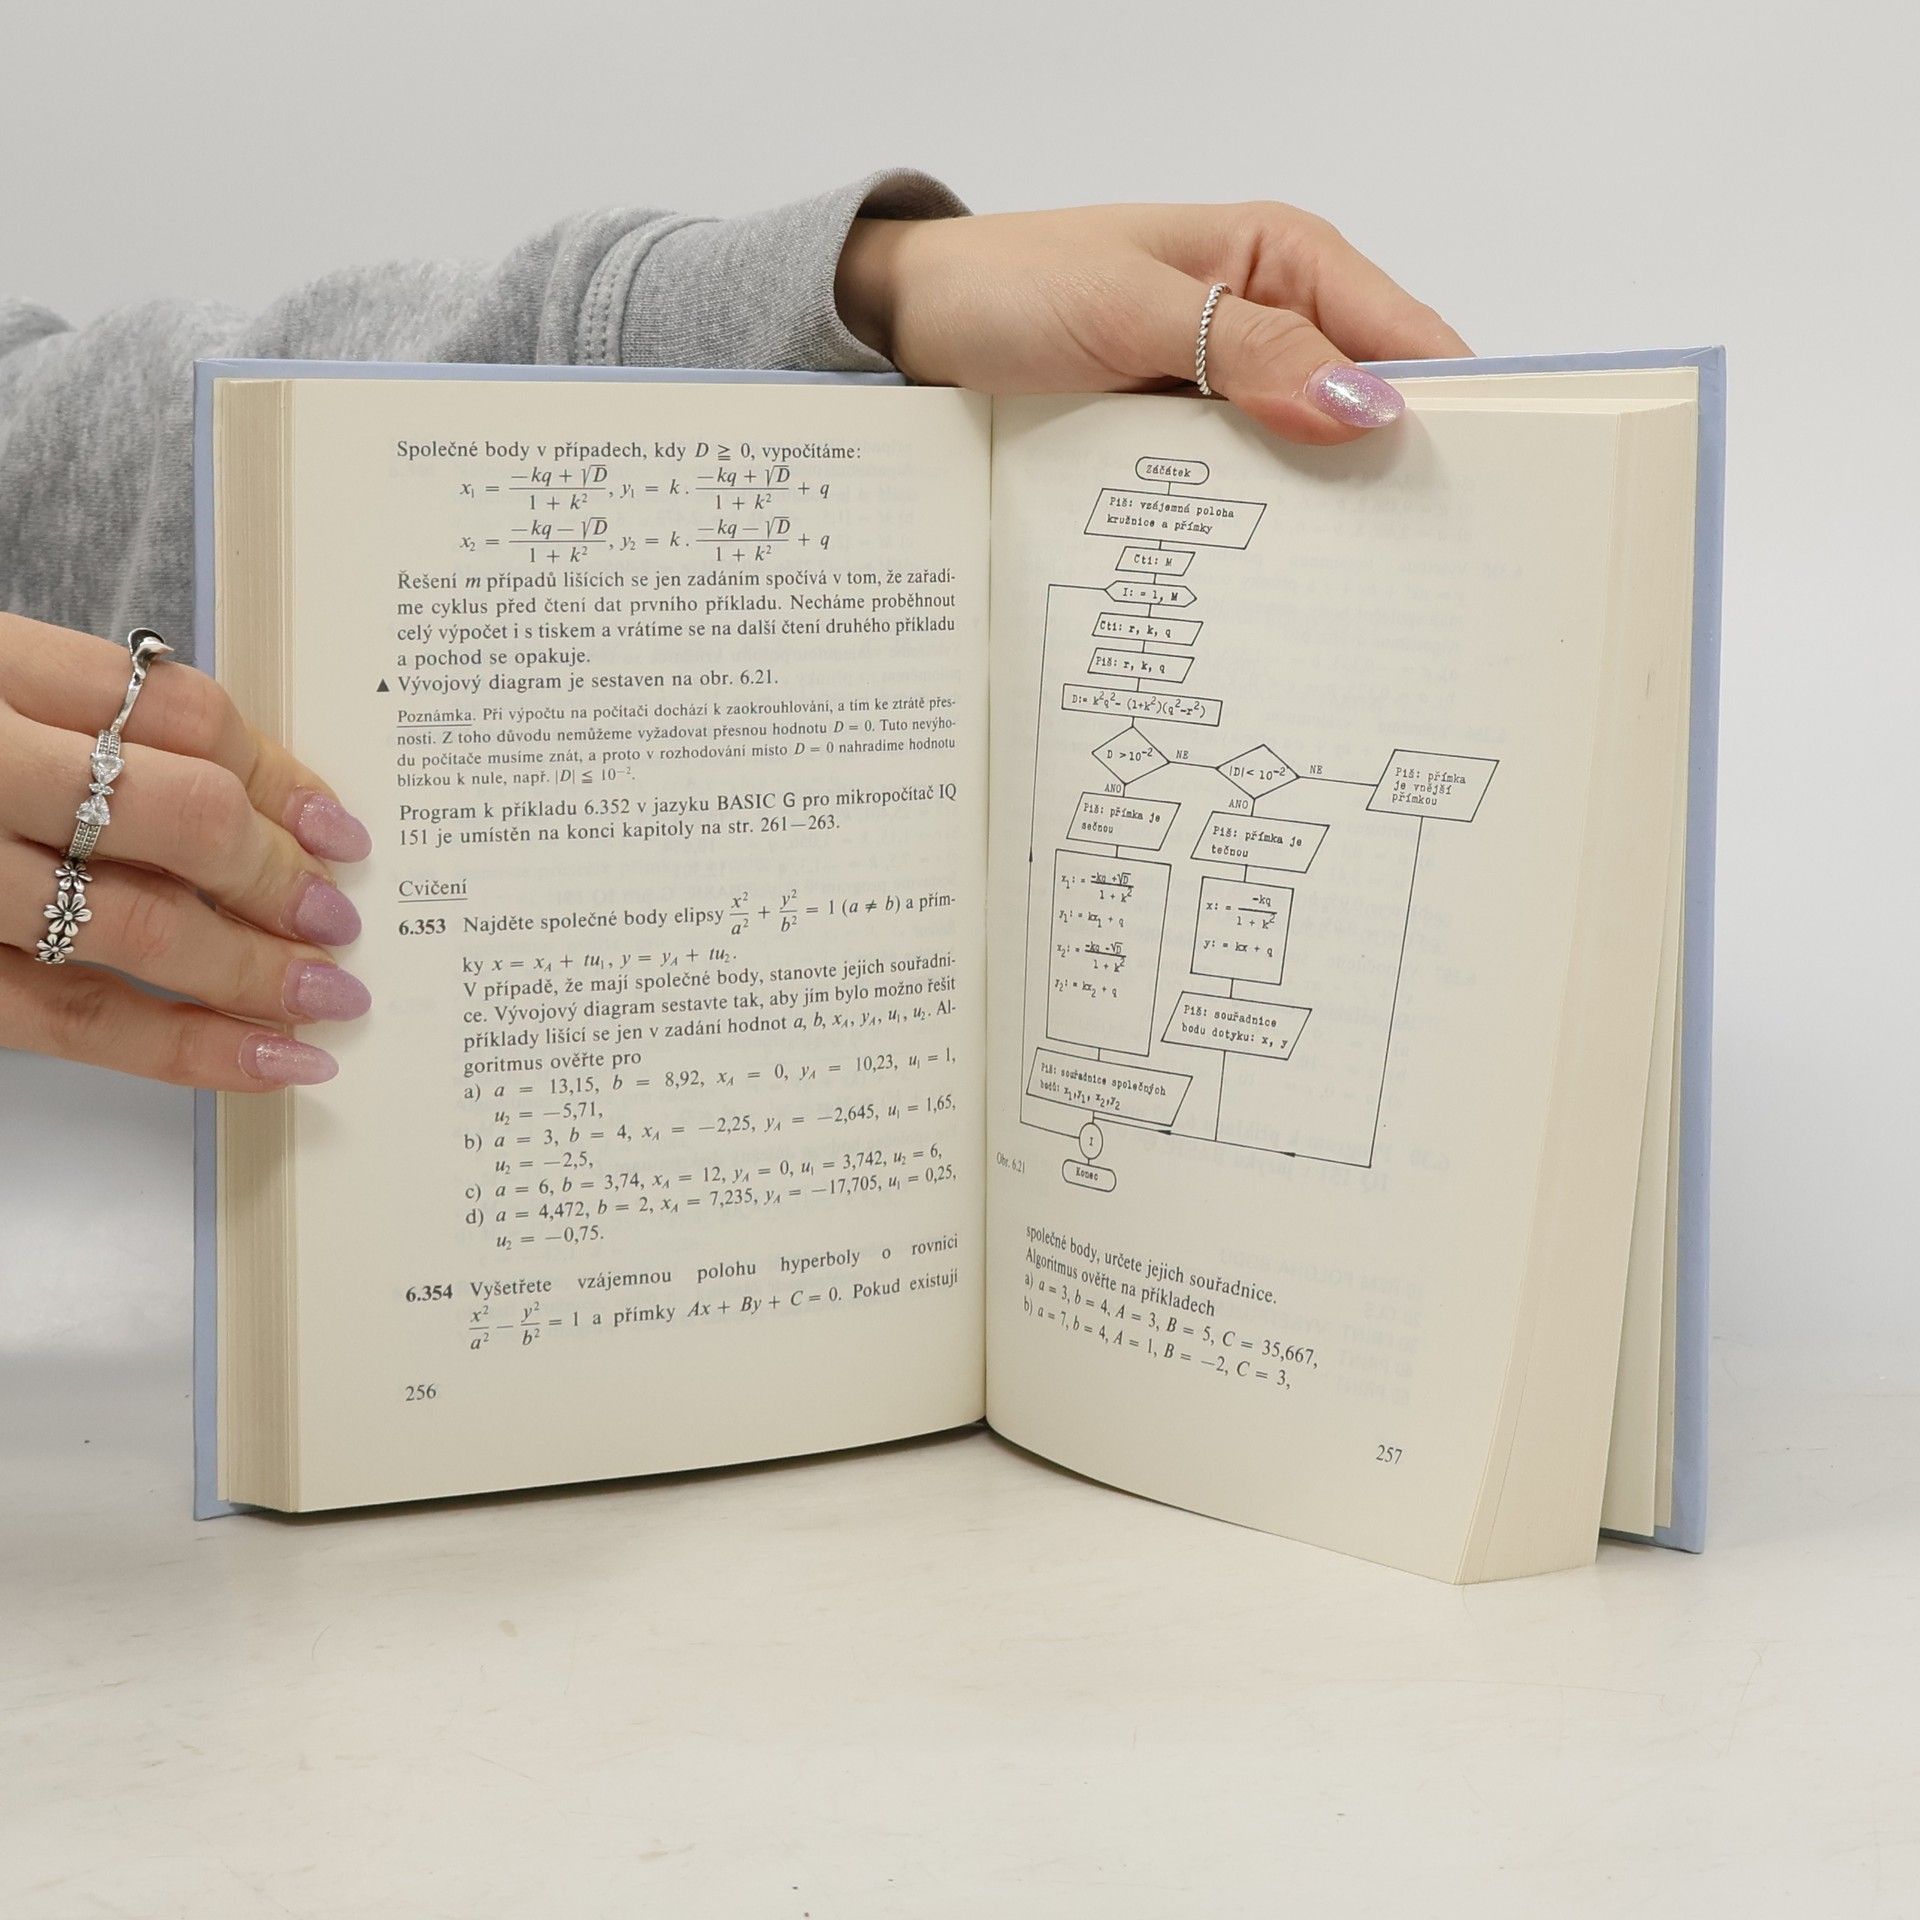 Společné body v případech, kdy D ≧ 0, vypočítáme:
x₁ = (−kq + √D)/(1 + k²), y₁ = k . (−kq + √D)/(1 + k²) + q
x₂ = (−kq − √D)/(1 + k²), y₂ = k . (−kq − √D)/(1 + k²) + q
Řešení m případů lišících se jen zadáním spočívá v tom, že zařadí-
me cyklus před čtení dat prvního příkladu. Necháme proběhnout
celý výpočet i s tiskem a vrátíme se na další čtení druhého příkladu
a pochod se opakuje.
▲ Vývojový diagram je sestaven na obr. 6.21.
Poznámka. Při výpočtu na počítači dochází k zaokrouhlování, a tím ke ztrátě přes-
nosti. Z toho důvodu nemůžeme vyžadovat přesnou hodnotu D = 0. Tuto nevýho-
du počítače musíme znát, a proto v rozhodování místo D = 0 nahradíme hodnotu
blízkou k nule, např. |D| ≦ 10⁻².
Program k příkladu 6.352 v jazyku BASIC G pro mikropočítač IQ
151 je umístěn na konci kapitoly na str. 261—263.
Cvičení
6.353 Najděte společné body elipsy x²/a² + y²/b² = 1 (a ≠ b) a přím-
ky x = x_A + tu₁, y = y_A + tu₂.
V případě, že mají společné body, stanovte jejich souřadni-
ce. Vývojový diagram sestavte tak, aby jím bylo možno řešit
příklady lišící se jen v zadání hodnot a, b, x_A, y_A, u₁, u₂. Al-
goritmus ověřte pro
a) a = 13,15, b = 8,92, x_A = 0, y_A = 10,23, u₁ = 1,
u₂ = −5,71,
b) a = 3, b = 4, x_A = −2,25, y_A = −2,645, u₁ = 1,65,
u₂ = −2,5,
c) a = 6, b = 3,74, x_A = 12, y_A = 0, u₁ = 3,742, u₂ = 6,
d) a = 4,472, b = 2, x_A = 7,235, y_A = −17,705, u₁ = 0,25,
u₂ = −0,75.
6.354 Vyšetřete vzájemnou polohu hyperboly o rovnici
x²/a² − y²/b² = 1 a přímky Ax + By + C = 0. Pokud existují
256
Záčátek
Piš: vzájemná poloha
kružnice a přímky
Čti: M
I: = 1, M
Čti: r, k, q
Piš: r, k, q
D:= k²q²− (1+k²)(q²−r²)
D >10⁻²
NE
|D|< 10⁻²
NE
Piš: přímka
je vnější
přímkou
ANO
ANO
Piš: přímka je
sečnou
Piš: přímka je
tečnou
x₁: = (−kq +√D)/(1 + k²)
y₁: = kx₁ + q
x₂: = (−kq −√D)/(1 + k²)
y₂: = kx₂ + q
x: = −kq/(1 + k²)
y: = kx + q
Piš: souřadnice
bodu dotyku: x, y
Piš: souřadnice společných
bodů: x₁,y₁, x₂,y₂
I
Konec
Obr. 6.21
společné body, určete jejich souřadnice.
Algoritmus ověřte na příkladech
a) a = 3, b = 4, A = 3, B = 5, C = 35,667,
b) a = 7, b = 4, A = 1, B = −2, C = 3,
257